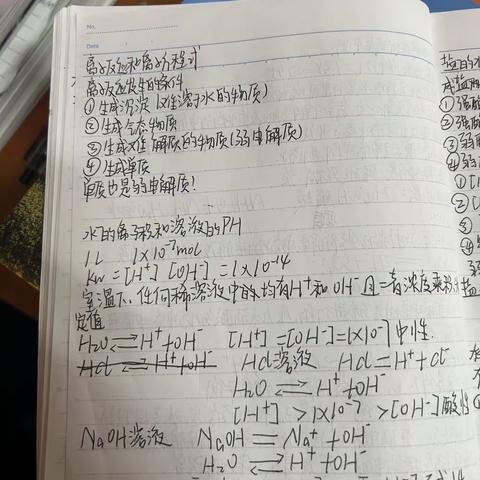 No.
Date
离子反应和离子方程式
离子反应发生的条件
①生成沉淀(难溶于水的物质)
②生成气态物质
③生成难解质的物质(弱电解质)
④生成单质
单质也是弱电解质?
水的离子积和溶液的PH
1L 1×10⁻⁷mol
Kw=[H⁺][OH⁻]=1×10⁻14
室温下、任何稀溶液中的均有H⁺和OH⁻且二者浓度乘积
定值
H₂O⇌H⁺+OH⁻ [H⁺]=[OH⁻]=1×10⁻⁷中性
HCl⇌H⁺+OH⁻ HCl溶液 HCl=H⁺+Cl⁻
H₂O⇌H⁺+OH⁻
[H⁺]>1×10⁻⁷>[OH⁻]酸性
NaOH溶液 NaOH=Na⁺+OH⁻
H₂O⇌H⁺+OH⁻
盐的水
①强酸
②强酸
③弱酸
④弱